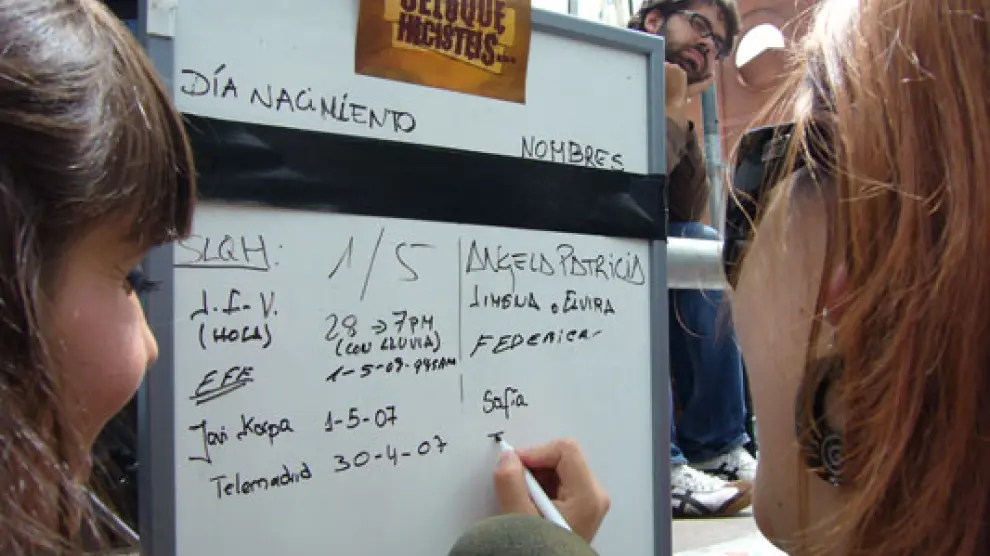 SÉ LO QUE
HICISTEIS...
DÍA NACIMIENTO
NOMBRES
SLQH: 1/5 ANGELA PATRICIA
J.L-V. JIMENA o ELVIRA
(HOLA) 28 → 7PM FEDERICA
(CON LLUVIA)
EFE 1-5-07-9'45AM
Javi Korpa 1-5-07 Sofía
Telemadrid 30-4-07